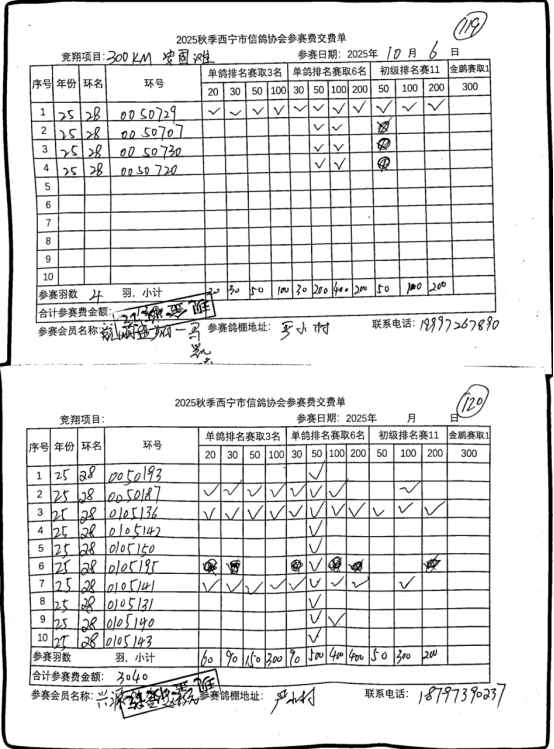 119
2025秋季西宁市信鸽协会参赛费交费单
竞翔项目：300KM 安固滩 参赛日期：2025年 10 月 6 日
序号 年份 环名 环号 单鸽排名赛取3名 单鸽排名赛取6名 初级排名赛11 金鹏赛取1
20 30 50 100 30 50 100 200 50 100 200 300
1 25 28 0050729 ✓ ✓ ✓ ✓ ✓ ✓ ✓ ✓ ✓ ✓ ✓
2 25 28 0050707 ✓ ✓
3 25 28 0050730 ✓ ✓
4 25 28 0050720 ✓ ✓
5
6
7
8
9
10
参赛羽数 4 羽，小计 20 30 50 100 30 200 400 200 50 100 200
合计参赛费金额：
参赛会员名称： 参赛鸽棚地址： 严小村 联系电话：18997267890
120
2025秋季西宁市信鸽协会参赛费交费单
竞翔项目： 参赛日期：2025年 月 日
序号 年份 环名 环号 单鸽排名赛取3名 单鸽排名赛取6名 初级排名赛11 金鹏赛取1
20 30 50 100 30 50 100 200 50 100 200 300
1 25 28 0050193 ✓
2 25 28 0050187 ✓ ✓ ✓ ✓ ✓ ✓ ✓ ✓
3 25 28 0105136 ✓ ✓ ✓ ✓ ✓ ✓ ✓ ✓ ✓ ✓ ✓
4 25 28 0105142 ✓
5 25 28 0105150 ✓
6 25 28 0105195 ✓
7 25 28 0105141 ✓ ✓ ✓ ✓ ✓ ✓ ✓ ✓ ✓
8 25 28 0105131 ✓
9 25 28 0105140 ✓ ✓
10 25 28 0105143 ✓
参赛羽数 羽，小计 60 90 150 300 90 500 400 400 50 300 200
合计参赛费金额： 3040
参赛会员名称： 参赛鸽棚地址： 严小村 联系电话： 18797390237